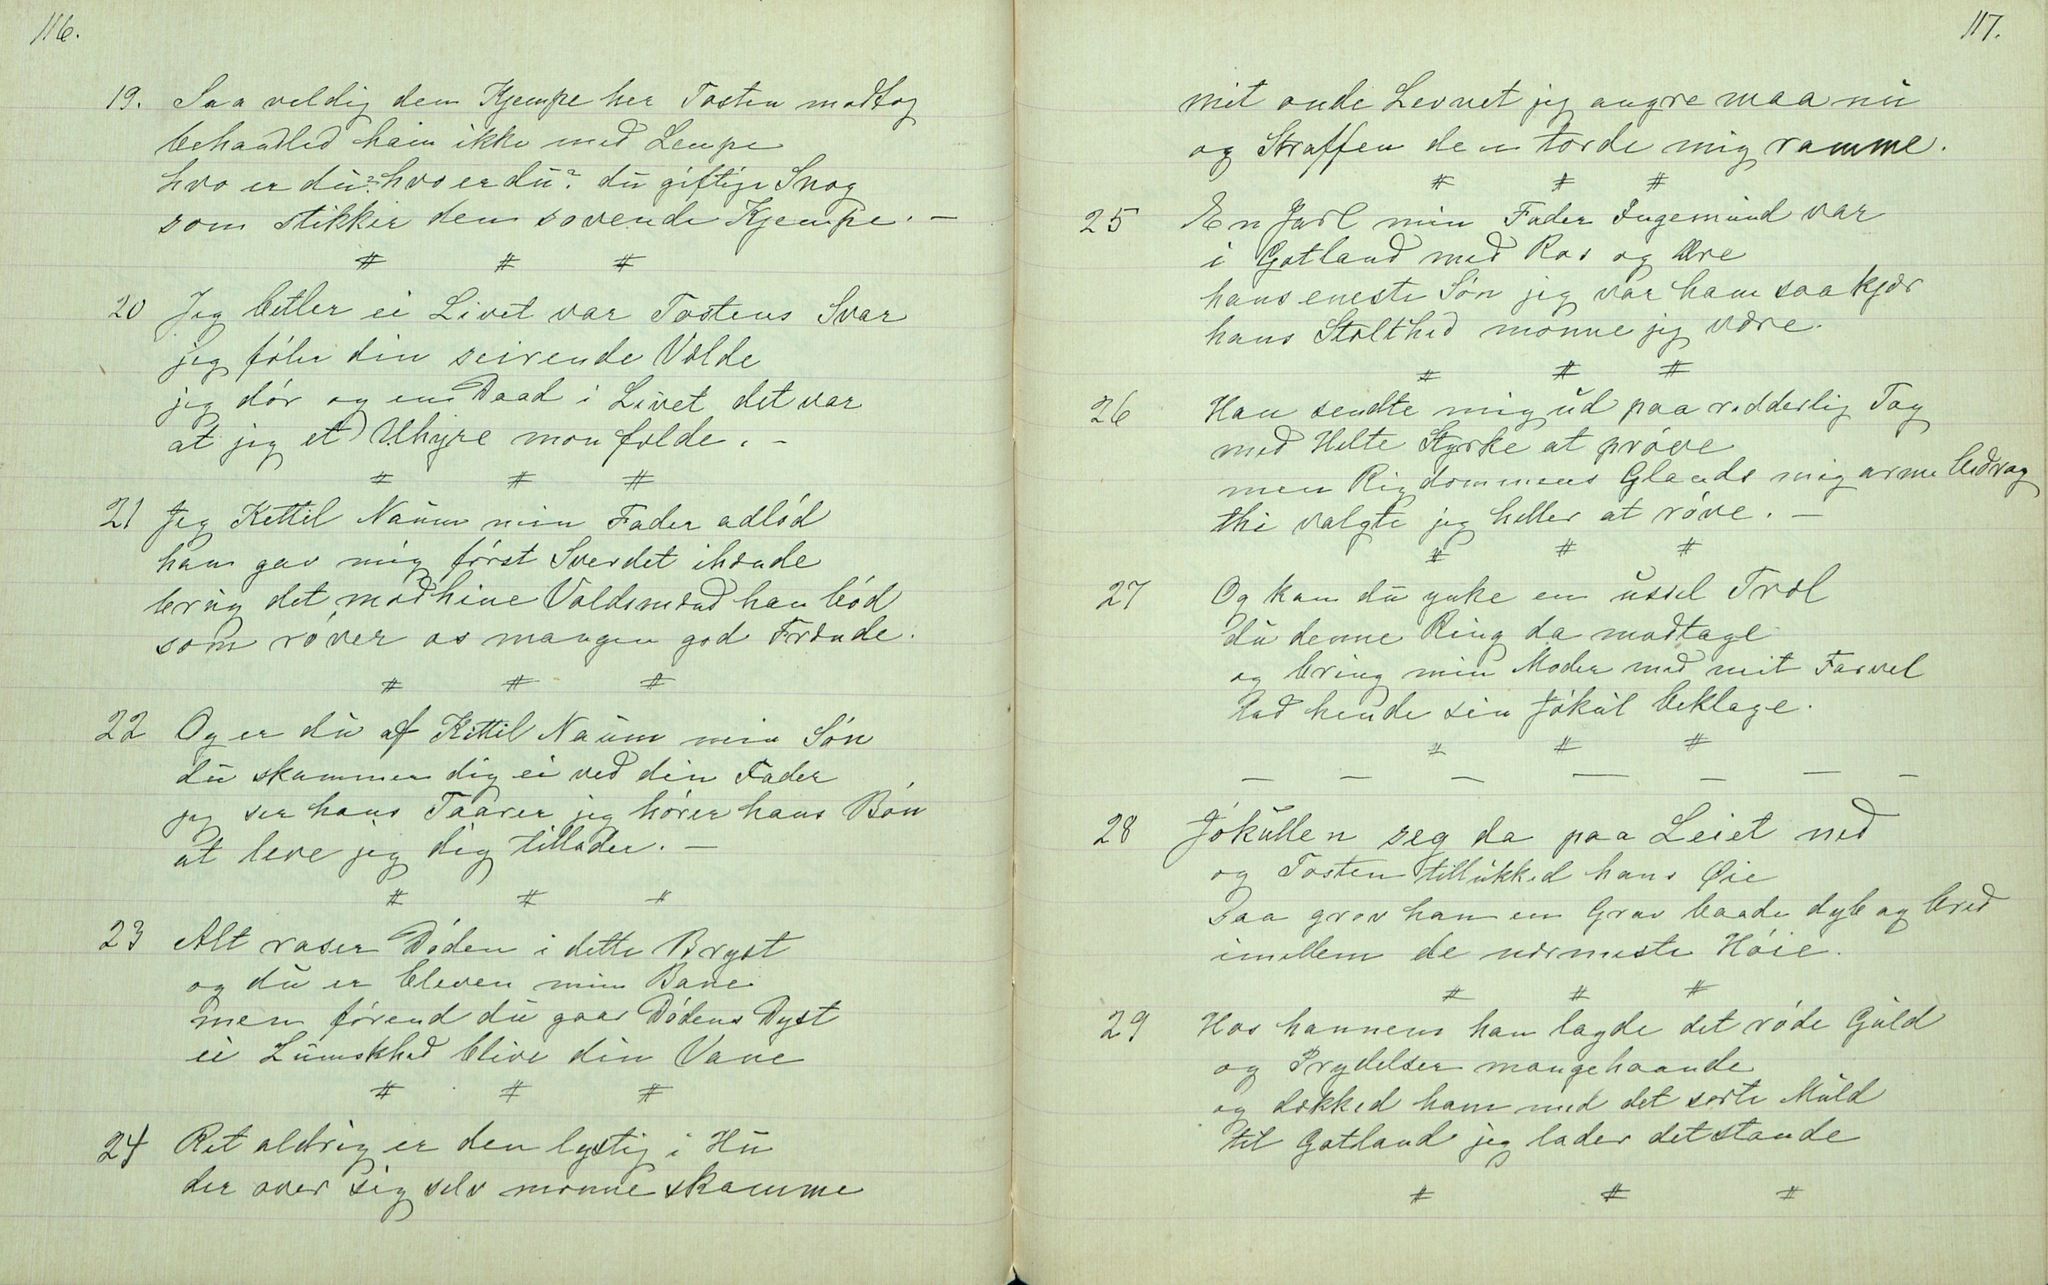 116.
19. Saa veldig dem Kjempe her Tosten modtog
behandled ham ikke med Lempe
hvo er du? hvo er du? du giftige Snog
som stikker den sovende Kjempe. —
# # #
20 Jeg betler ei Livet var Tostens Svar
jeg føler din seirende Vælde
jeg dør og en Daad i Livet det var
at jeg et Uhyre mon fælde. —
# # #
21 Jeg Kettil Naum min Fader adlød
han gav mig først Sverdet ihænde
brug det mod hine Voldsmænd han bød
som røver os mangen god Frænde.
# # #
22 Og er du af Kittil Naum min Søn
du skammer dig ei ved din Fader
jeg ser hans Taarer jeg hører hans Bøn
at leve jeg dig tillader. —
# # #
23 Alt raser Døden i dette Bryst
og du er bleven min Bane
men førend du gaar Dødens Dyst
ei Lumskhed blive din Vane
# # #
24 Ret aldrig er den lystig i Hu
der over sig selv monne skamme
117.
mit onde Levnet jeg angre maa nu
og Straffen den torde mig ramme.
# # #
25 En Jarl min Fader Ingemund var
i Gotland med Ros og Ære
hans eneste Søn jeg var ham saa kjær
hans Stolthed monne jeg være.
# # #
26 Han sendte mig ud paa ridderlig Tog
med Helte Styrke at prøve
men Rigdommens Glands mig arme bedrog
thi valgte jeg heller at røve. —
# # #
27 Og kan du ynke en ussel Træl
du denne Ring da modtage
og bring min Moder med mit Farvel
lad hende sin Jøkul beklage.
# # #
— — — — — — —
28 Jøkullen seg da paa Leiet ned
og Tosten tillukked hans Øie
Saa grov han en Grav baade dyb og bred
imellem de nærmeste Høie.
# # #
29 Hos hannem han lagde det røde Guld
og Prydelser mangehaande
og dækked ham med det sorte Muld
til Gotland jeg lader det stande
# # #